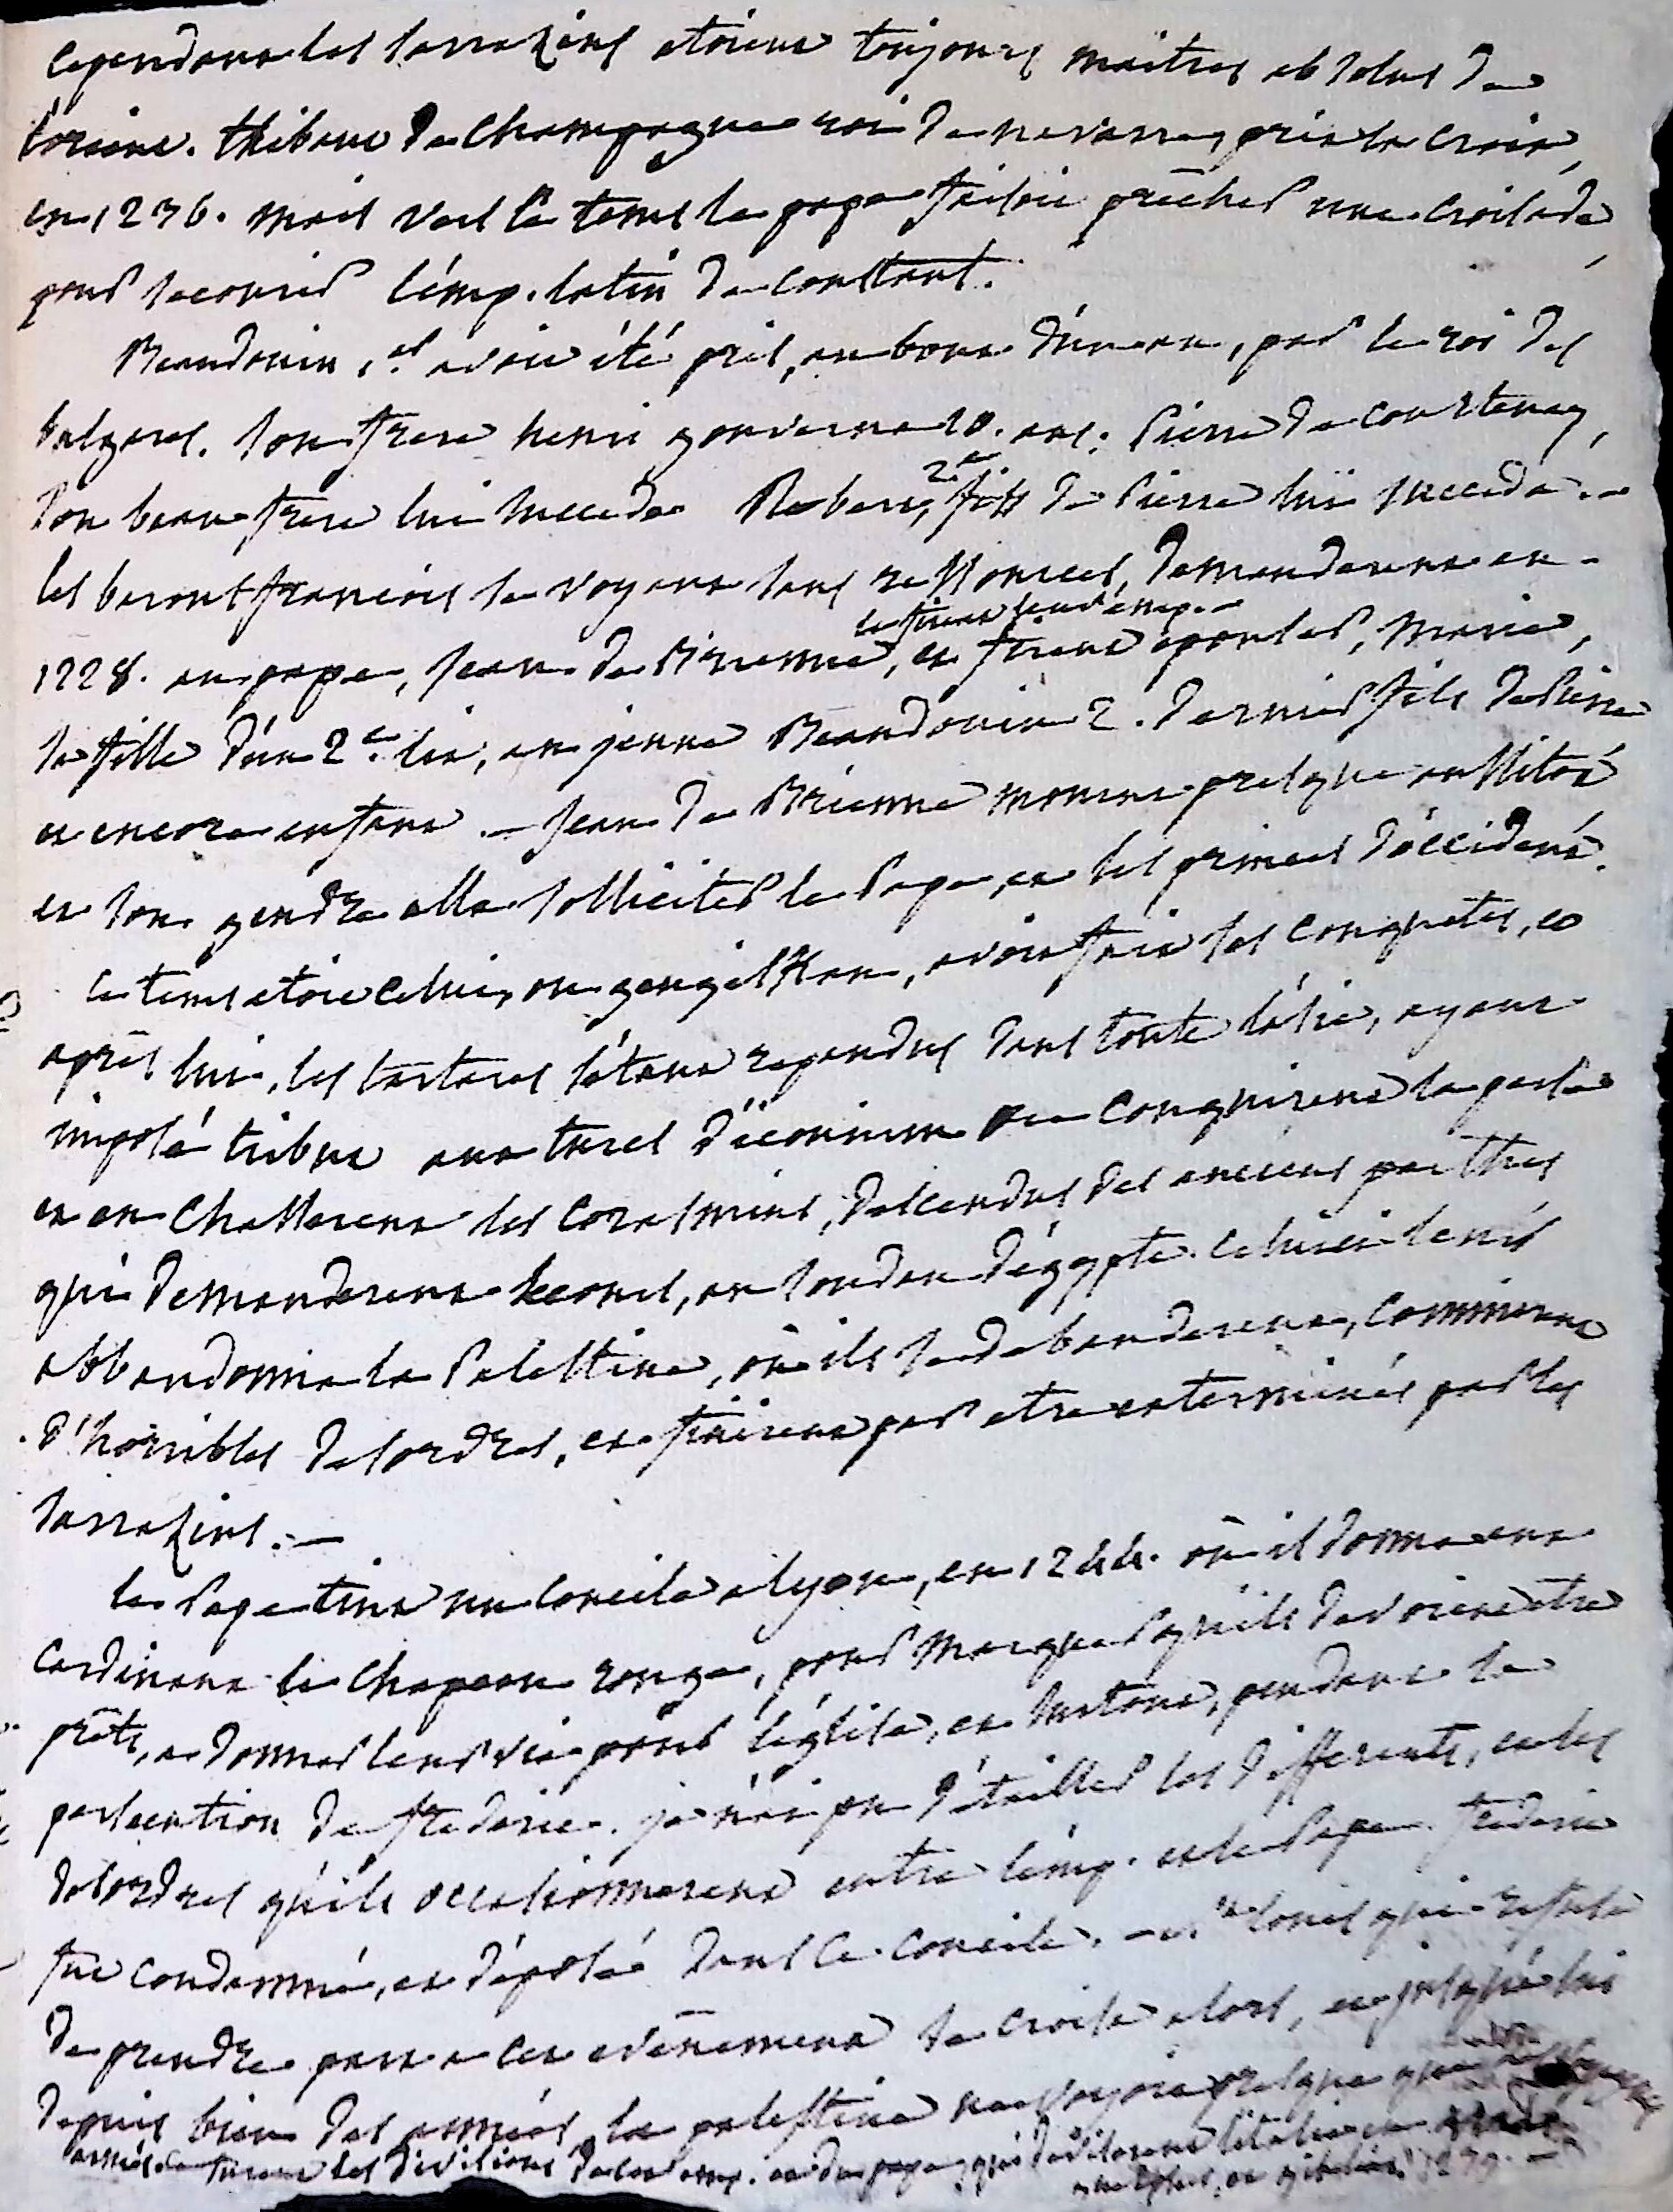 Cependant les sarrazins etoient toujours maitres absolus de
l'orient. thibaut de Champagne roi de navarre, prit la croix,
en 1236. mais vers ce tems le pape faisoit prêcher une croisade
pour secourir l'emp. latin de constant.
Beaudouin 1.er avoit été pris, au bout d'un an, par le roi des
bulgares. son frere henri gouverna 10. ans. Pierre de Courtenay,
son beau frere lui succeda Robert, 2e fils de Pierre lui succeda. -
les barons francois se voyant sans ressources, demanderent en
1228. au pape, Jean de Brienne, le firent leur emp. - et firent epouser, Marie,
sa fille d'un 2e. lit, au jeune Beaudouin 2. dernier fils de Pierre
et encore enfant. - Jean de Brienne mourut presque aussitôt
et son gendre alla solliciter le Pape, et les princes d'occident.
ce tems etoit celui, ou gengiskan, avoit fait ses conquêtes, et
après lui, les tartares s'étant repandus dans toute l'asie, ayant
imposé tribut aux turcs d'iconium conquirent la perse
et en chasserent les corasmins, descendus des anciens parthes
qui demanderent secours, au soudan d'égypte. celui ci leur
abbandonna la Palestine, où ils se debanderent, commirent
d'horribles desordres, et finirent par etre exterminés par les
sarrazins. -
le Pape tint un concile a lyon, en 1244. où il donna aux
Cardinaux le chapeau rouge, pour marquer qu'ils devoient etre
prêts, a donner leur vie pour l'église, et surtout, pendant la
persecution de frederic. je n'ai pu détailler les differents, et les
desordres qu'ils occasionnerent entre l'emp. et le Pape. frederic
fut condamné, et déposé dans ce concile. - st. louis qui refusa
de prendre part a cet evénement se croisa alors, et jusqu'à lui
depuis bien des années, la palestine ne voyoit presque que
armée. furent les divisions de cet emp. et du pape, qui diviserent l'italie en
guelphes, et gibelins.